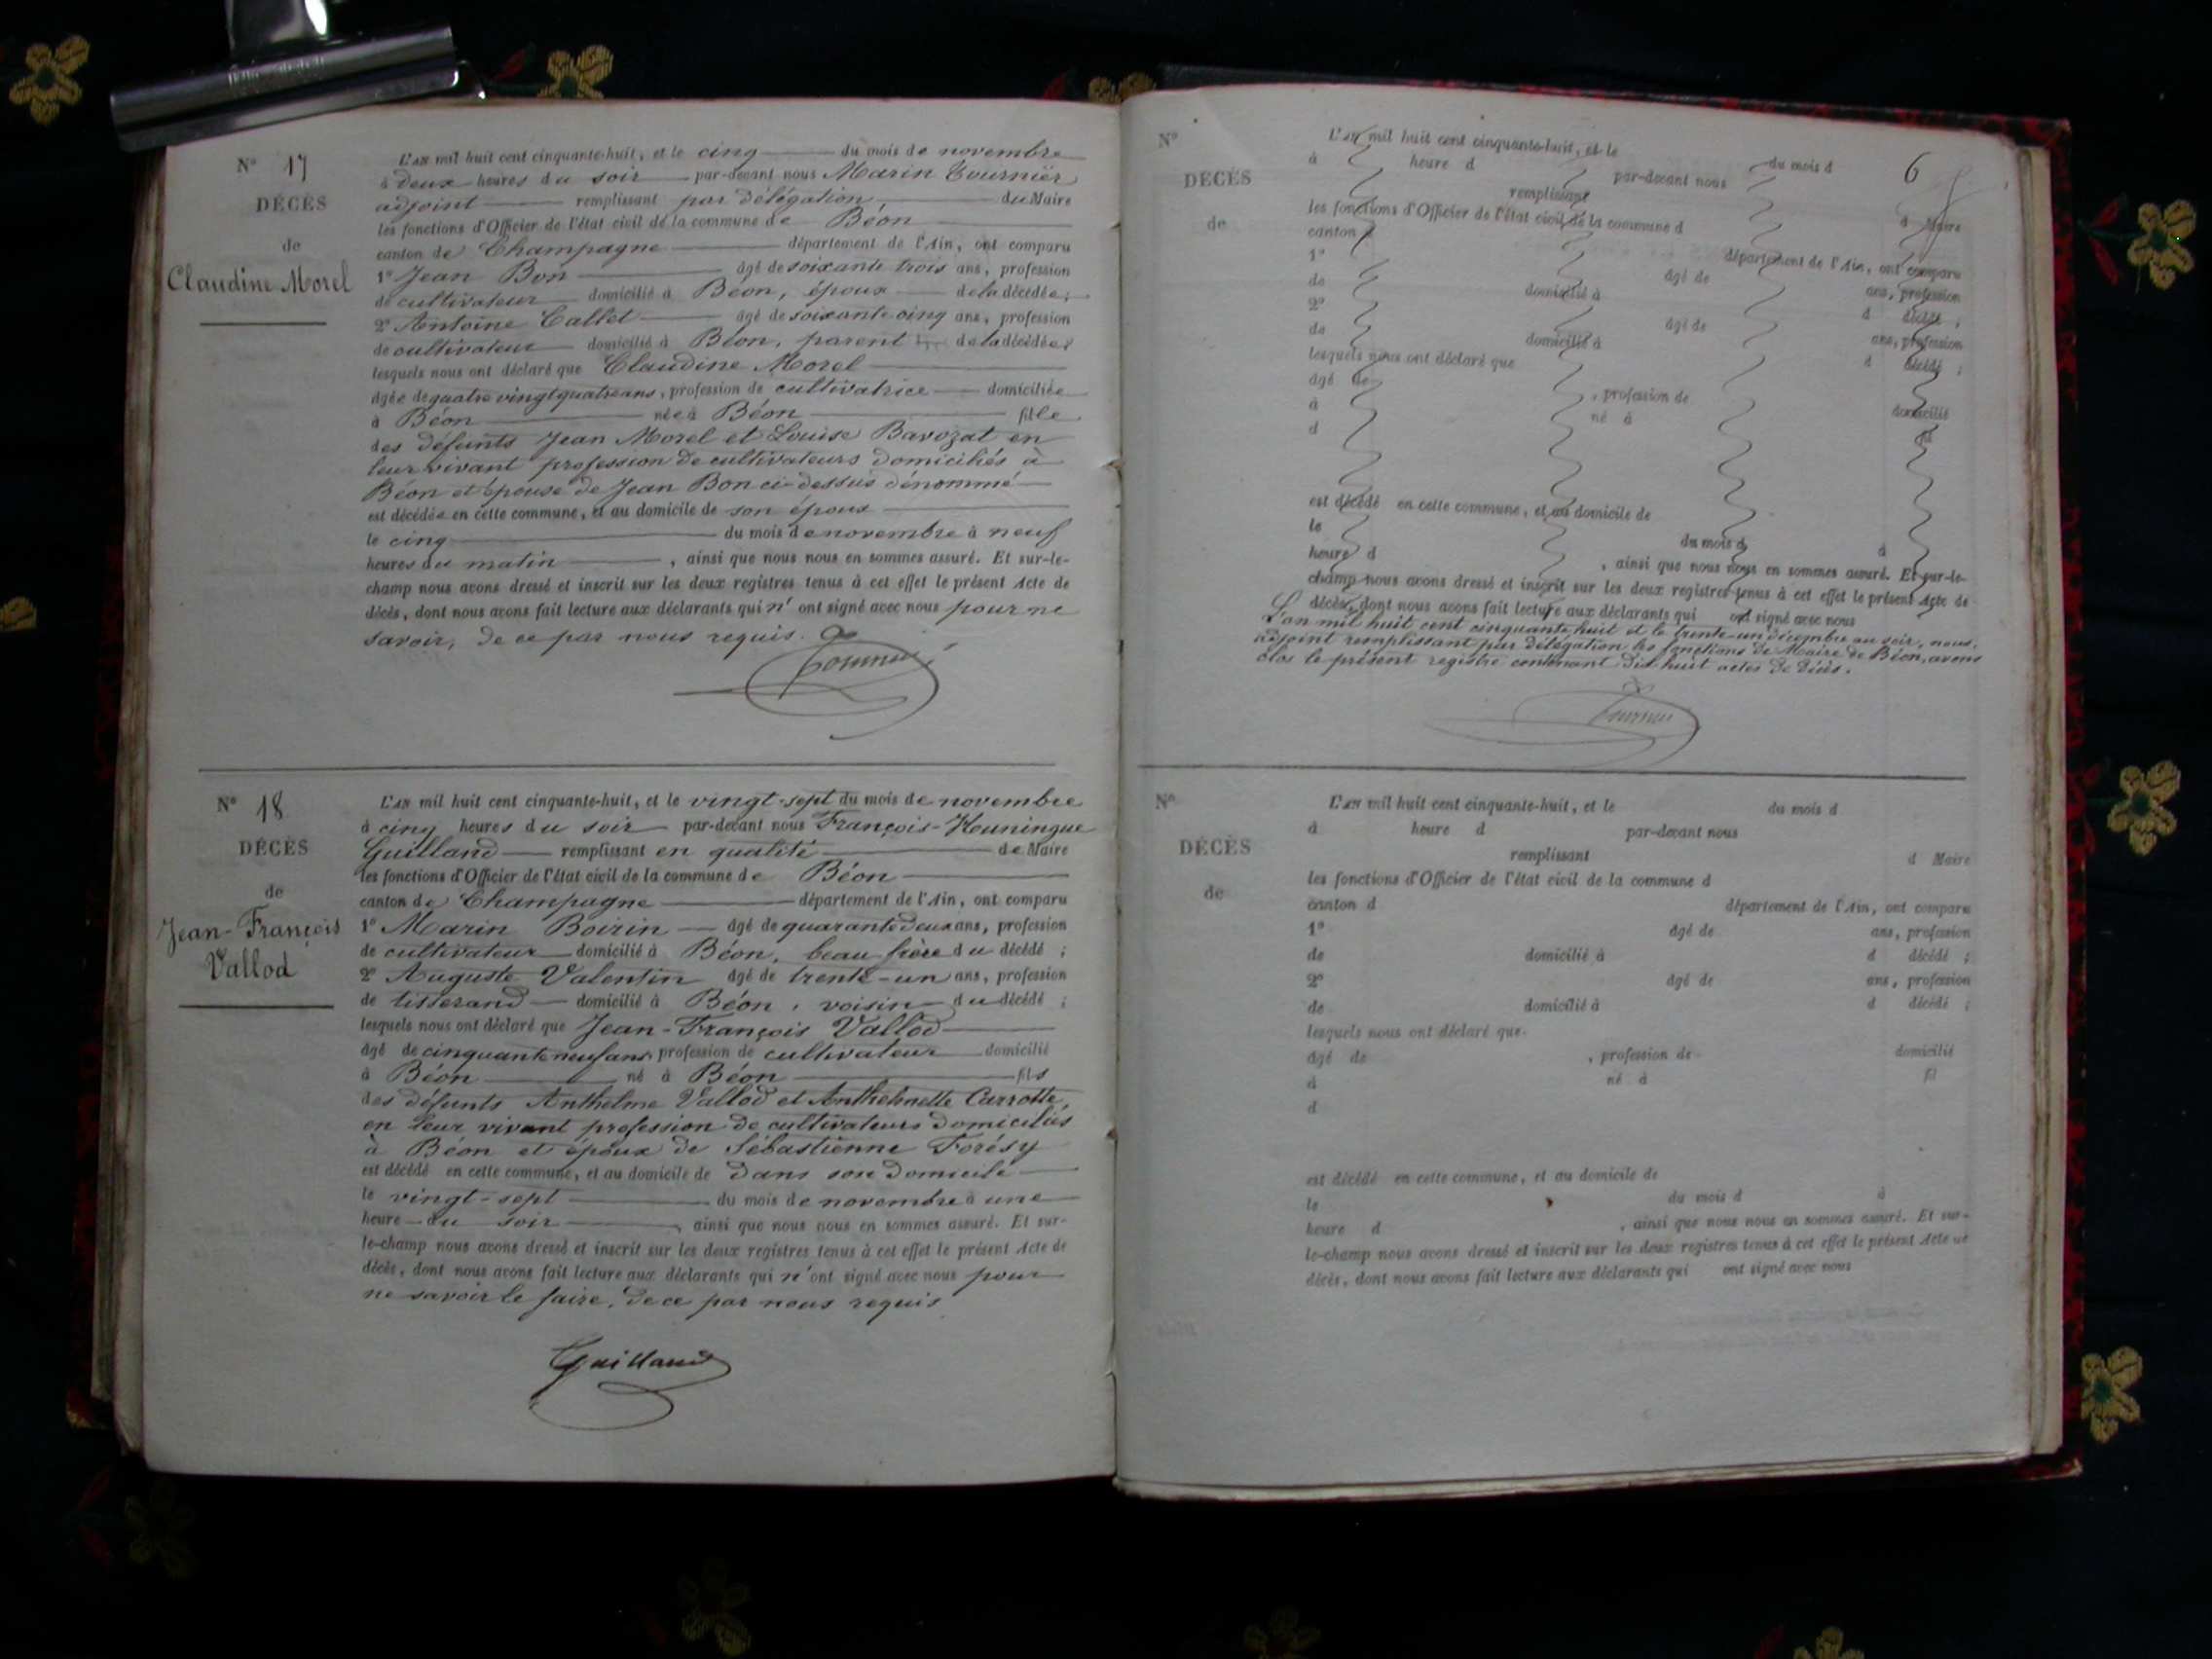 N° 17
DÉCÈS
de
Claudine Morel
L'AN mil huit cent cinquante-huit, et le cinq du mois de novembre
à deux heures du soir par-devant nous Marin Tournier
adjoint remplissant par délégation du Maire
les fonctions d'Officier de l'état civil de la commune de Béon
canton de Champagne département de l'Ain, ont comparu
1° Jean Bon âgé de soixante trois ans, profession
de cultivateur domicilié à Béon, époux de la décédée;
2° Antoine Callet âgé de soixante cinq ans, profession
de cultivateur domicilié à Béon, parent de la décédée;
lesquels nous ont déclaré que Claudine Morel
âgée de quatre vingt quatre ans, profession de cultivatrice domiciliée
à Béon née à Béon fille
des défunts Jean Morel et Louise Bavozat en
leur vivant profession de cultivateurs domiciliés à
Béon et épouse de Jean Bon ci-dessus dénommé
est décédée en cette commune, et au domicile de son époux
le cinq du mois de novembre à neuf
heures du matin, ainsi que nous nous en sommes assuré. Et sur-le-
champ nous avons dressé et inscrit sur les deux registres tenus à cet effet le présent Acte de
décès, dont nous avons fait lecture aux déclarants qui n'ont signé avec nous pour ne
savoir, de ce par nous requis.
Tournier
N° 18
DÉCÈS
de
Jean-François
Vallod
L'AN mil huit cent cinquante-huit, et le vingt-sept du mois de novembre
à cinq heures du soir par-devant nous François-Heuningue
Guilland remplissant en qualité de Maire
les fonctions d'Officier de l'état civil de la commune de Béon
canton de Champagne département de l'Ain, ont comparu
1° Marin Boirin âgé de quarante deux ans, profession
de cultivateur domicilié à Béon, beau frère du décédé ;
2° Auguste Valentin âgé de trente-un ans, profession
de tisserand domicilié à Béon, voisin du décédé ;
lesquels nous ont déclaré que Jean-François Vallod
âgé de cinquante neuf ans, profession de cultivateur domicilié
à Béon né à Béon fils
des défunts Anthelme Vallod et Anthelmette Carrotte,
en leur vivant profession de cultivateurs domiciliés
à Béon et époux de Sébastienne Forésy
est décédé en cette commune, et au domicile de dans son domicile
le vingt-sept du mois de novembre à une
heure du soir, ainsi que nous nous en sommes assuré. Et sur-
le-champ nous avons dressé et inscrit sur les deux registres tenus à cet effet le présent Acte de
décès, dont nous avons fait lecture aux déclarants qui n'ont signé avec nous pour
ne savoir le faire, de ce par nous requis
Guilland
6
N°
DÉCÈS
de
L'AN mil huit cent cinquante-huit, et le du mois d
à heure d par-devant nous
remplissant d Maire
les fonctions d'Officier de l'état civil de la commune d
canton d département de l'Ain, ont comparu
1° âgé de ans, profession
de domicilié à d décédé ;
2° âgé de ans, profession
de domicilié à d décédé ;
lesquels nous ont déclaré que
âgé de , profession de domicilié
à né à fil
d
est décédé en cette commune, et au domicile de
le du mois d à
heure d , ainsi que nous nous en sommes assuré. Et sur-le-
champ nous avons dressé et inscrit sur les deux registres tenus à cet effet le présent Acte de
décès, dont nous avons fait lecture aux déclarants qui ont signé avec nous
L'an mil huit cent cinquante huit et le trente-un décembre au soir, nous,
adjoint remplissant par délégation les fonctions de Maire de Béon, avons
clos le présent registre contenant dix huit actes de décès.
Tournier
N°
DÉCÈS
de
L'AN mil huit cent cinquante-huit, et le du mois d
à heure d par-devant nous
remplissant d Maire
les fonctions d'Officier de l'état civil de la commune d
canton d département de l'Ain, ont comparu
1° âgé de ans, profession
de domicilié à d décédé ;
2° âgé de ans, profession
de domicilié à d décédé ;
lesquels nous ont déclaré que
âgé de , profession de domicilié
à né à fil
d
est décédé en cette commune, et au domicile de
le du mois d à
heure d , ainsi que nous nous en sommes assuré. Et sur-
le-champ nous avons dressé et inscrit sur les deux registres tenus à cet effet le présent Acte de
décès, dont nous avons fait lecture aux déclarants qui ont signé avec nous